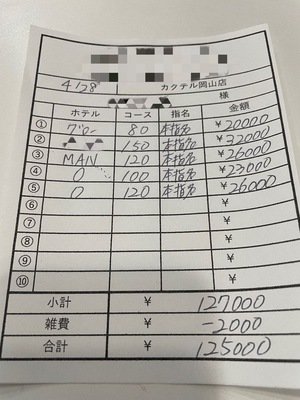 4/28 カクテル岡山店
様
ホテル コース 指名 金額
① グレー 80 本指名 ¥20000
② 150 本指名 ¥32000
③ MAN 120 本指名 ¥26000
④ O 100 本指名 ¥23000
⑤ O 120 本指名 ¥26000
⑥
⑦
⑧
⑨
⑩
小計 ¥ 127000
雑費 ¥ -2000
合計 ¥ 125000